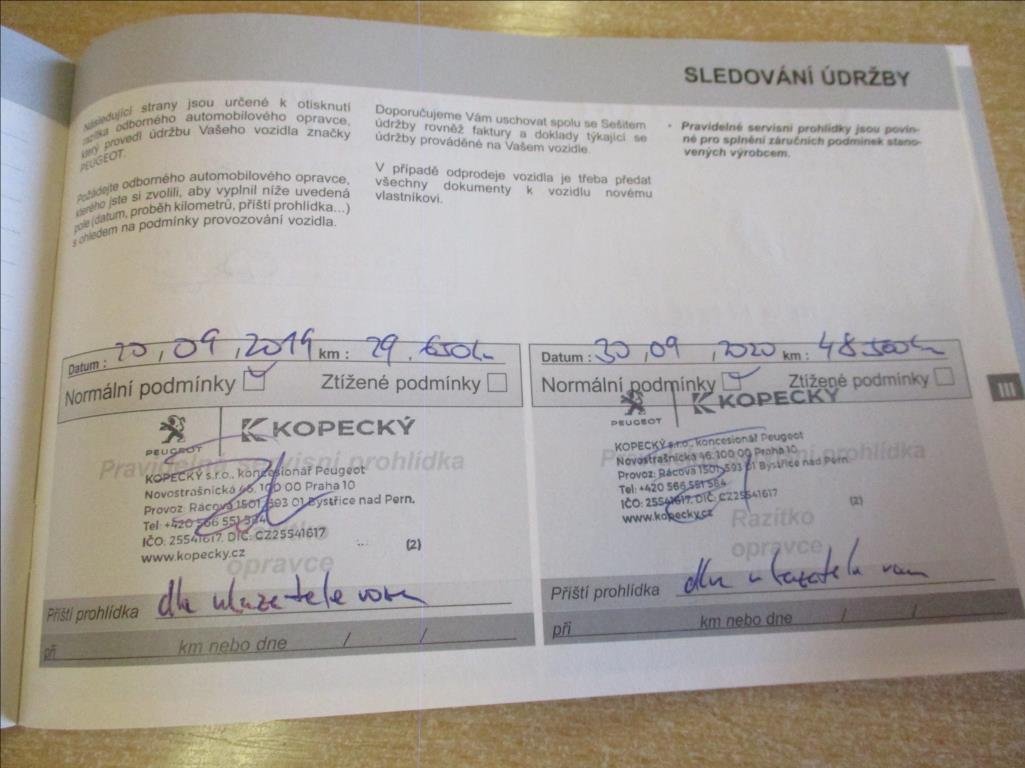 SLEDOVÁNÍ ÚDRŽBY
Následující strany jsou určené k otisknutí
razítka odborného automobilového opravce,
který provedl údržbu Vašeho vozidla značky
PEUGEOT.
Požádejte odborného automobilového opravce,
kterého jste si zvolili, aby vyplnil níže uvedená
pole (datum, proběh kilometrů, příští prohlídka...)
s ohledem na podmínky provozování vozidla.
Doporučujeme Vám uschovat spolu se Sešitem
údržby rovněž faktury a doklady týkající se
údržby prováděné na Vašem vozidle.
V případě odprodeje vozidla je třeba předat
všechny dokumenty k vozidlu novému
vlastníkovi.
• Pravidelné servisní prohlídky jsou povin-
né pro splnění záručních podmínek stano-
vených výrobcem.
Datum : 20,09,2019 km : 29.650km
Normální podmínky Ztížené podmínky
PEUGEOT
KOPECKÝ
Pravidelná servisní prohlídka
KOPECKÝ s.r.o., koncesionář Peugeot
Novostrašnická 46, 100 00 Praha 10
Provoz: Rácova 1501, 593 01 Bystřice nad Pern.
Tel: +420 566 551 584
IČO: 25541617, DIČ: CZ25541617
www.kopecky.cz
(2)
opravce
Příští prohlídka dle ukazatele vozu
při km nebo dne / /
Datum : 30,09,2020 km : 48.500km
Normální podmínky Ztížené podmínky
PEUGEOT
KOPECKÝ
KOPECKÝ s.r.o., koncesionář Peugeot
Novostrašnická 46, 100 00 Praha 10
Provoz: Rácova 1501, 593 01 Bystřice nad Pern.
Tel: +420 566 551 584
IČO: 25541617, DIČ: CZ25541617
www.kopecky.cz
(2)
Razítko
opravce
Příští prohlídka dle ukazatele vozu
při km nebo dne / /
III